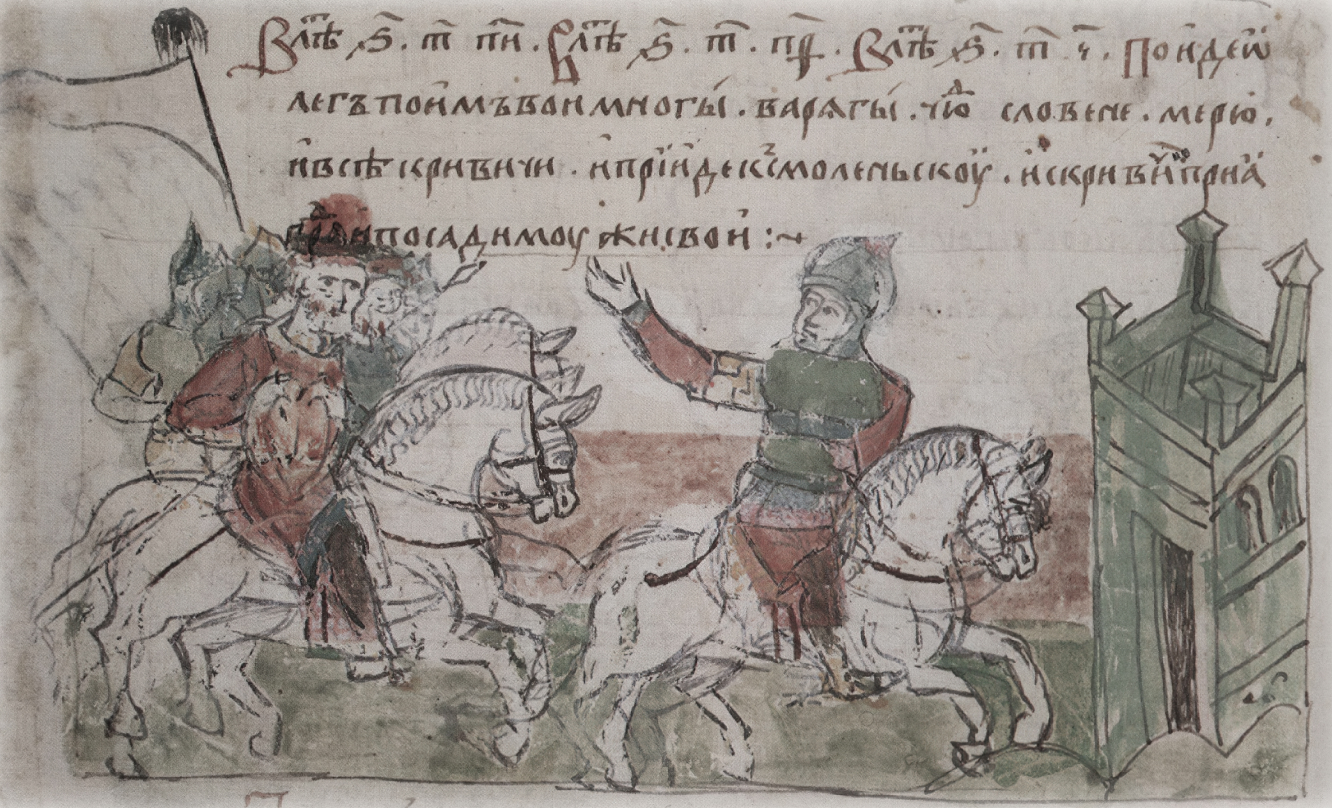 Влⷮѣ ҂ѕ҃. т҃ п҃и. Влⷮѣ ҂ѕ҃. т҃. п҃ѳ. Влⷮѣ ҂ѕ҃. т҃ ч҃. Поидеѡ
легъ поимъ вои многы. варѧгы. чюⷣ словене. мерю.
ивсѣ кривичи. и прїиде къ смоленьскоу. и скривиⷱ҇и приѧ
граⷣ и посади моужи свои :~